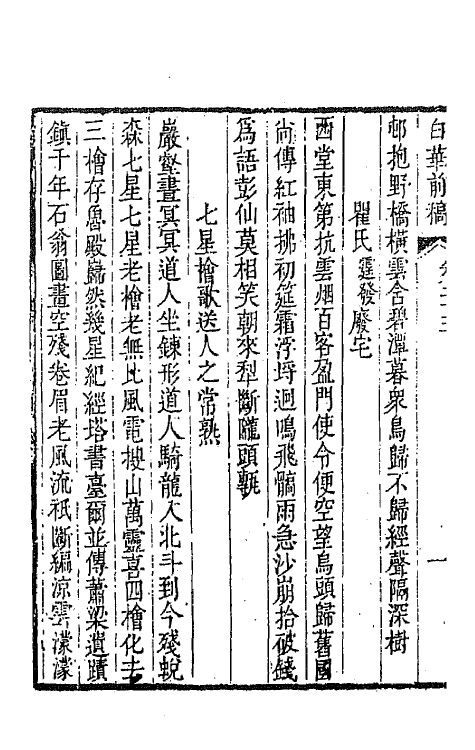 白華前稿 卷二十三 一
邨抱野橋橫雲舍碧潭暮衆鳥歸不歸經聲隔深樹
瞿氏霆發廢宅
西堂東第抗雲烟百客盈門使令便空望烏頭歸舊國
尙傳紅袖拂初筵霜浮埓迴鳴飛髇雨急沙崩拾破錢
爲語彭仙莫相笑朝來犁斷隴頭甎
七星檜歌送人之常熟
巖壑晝冥冥道人坐鍊形道人騎龍入北斗到今殘蛻
森七星七星老檜老無比風電搜山萬靈喜四檜化去
三檜存魯殿巋然幾星紀經塔書臺爾並傳蕭梁遺蹟
鎮千年石翁圖畫空殘卷眉老風流祇斷編凉雲濛濛